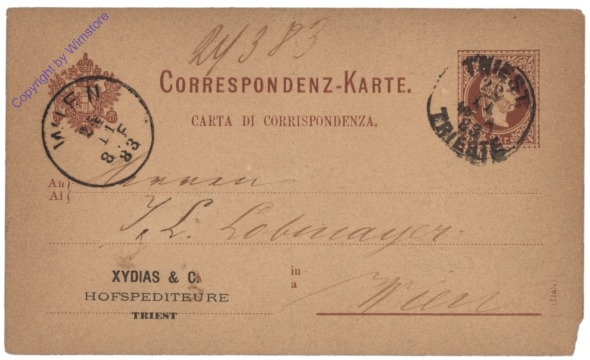 Copyright by Wimstore
24 3 83
CORRESPONDENZ-KARTE.
CARTA DI CORRISPONDENZA.
WIEN
83
TRIEST
TRIESTE
An
Al
Herren
J. L. Lobmayer
XYDIAS & C.
HOFSPEDITEURE
TRIEST
in
a
Wien
(Ital.)